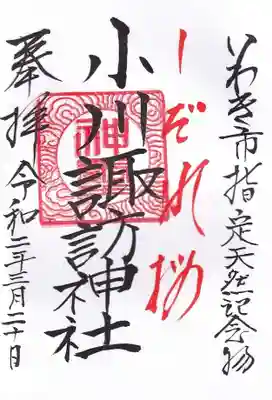 いわき市指定天然記念物
しだれ桜
小川諏訪神社
神
奉拝 令和二年三月二十日